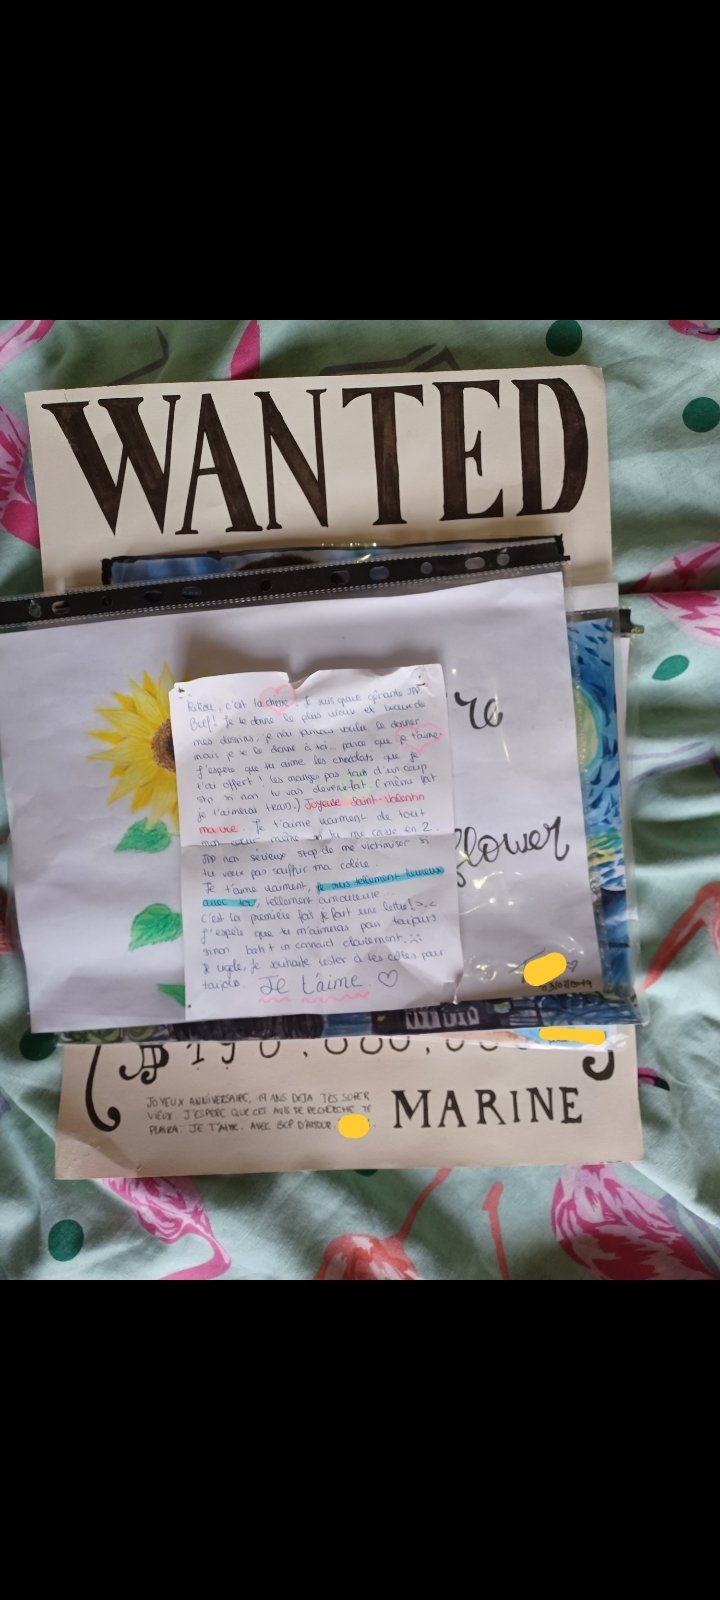 WANTED
c'est la chérie. J suis grave gênante JPP
Bref! Je te donne le plus vieux et beau de
mes dessins. je n'ai jamais voulu le donner
mais je te le donne à toi... parce que je t'aime.
J'espère que tu aime les chocolats que je
t'ai offert! Les manges pas tout d'un coup
stp si non tu vas devenir fat (même fat
je t'aimerai trkl.) Joyeuse Saint-Valentin
ma vie. Je t'aime vraiment de tout
mon cœur même si tu me casse en 2..
JPP non sérieux stop de me victimiser si
tu veux pas souffrir ma colère.
Je t'aime vraiment, je suis tellement heureuse
avec toi, tellement amoureuse...
c'est la première fois je fait une lettre! >.<
J'espère que tu m'aimeras pour toujours
sinon bah t un connard clairement.
je souhaite rester à tes côtés pour
toujours. Je t'aime ♡
re
flower
03/02/2019
JOYEUX ANNIVERSAIRE, 19 ANS DEJA T'ES SUPER
VIEUX. J'ESPERE QUE CET AVIS DE RECHERCHE TE
PLAIRA. JE T'AIME. AVEC BCP D'AMOUR.
MARINE